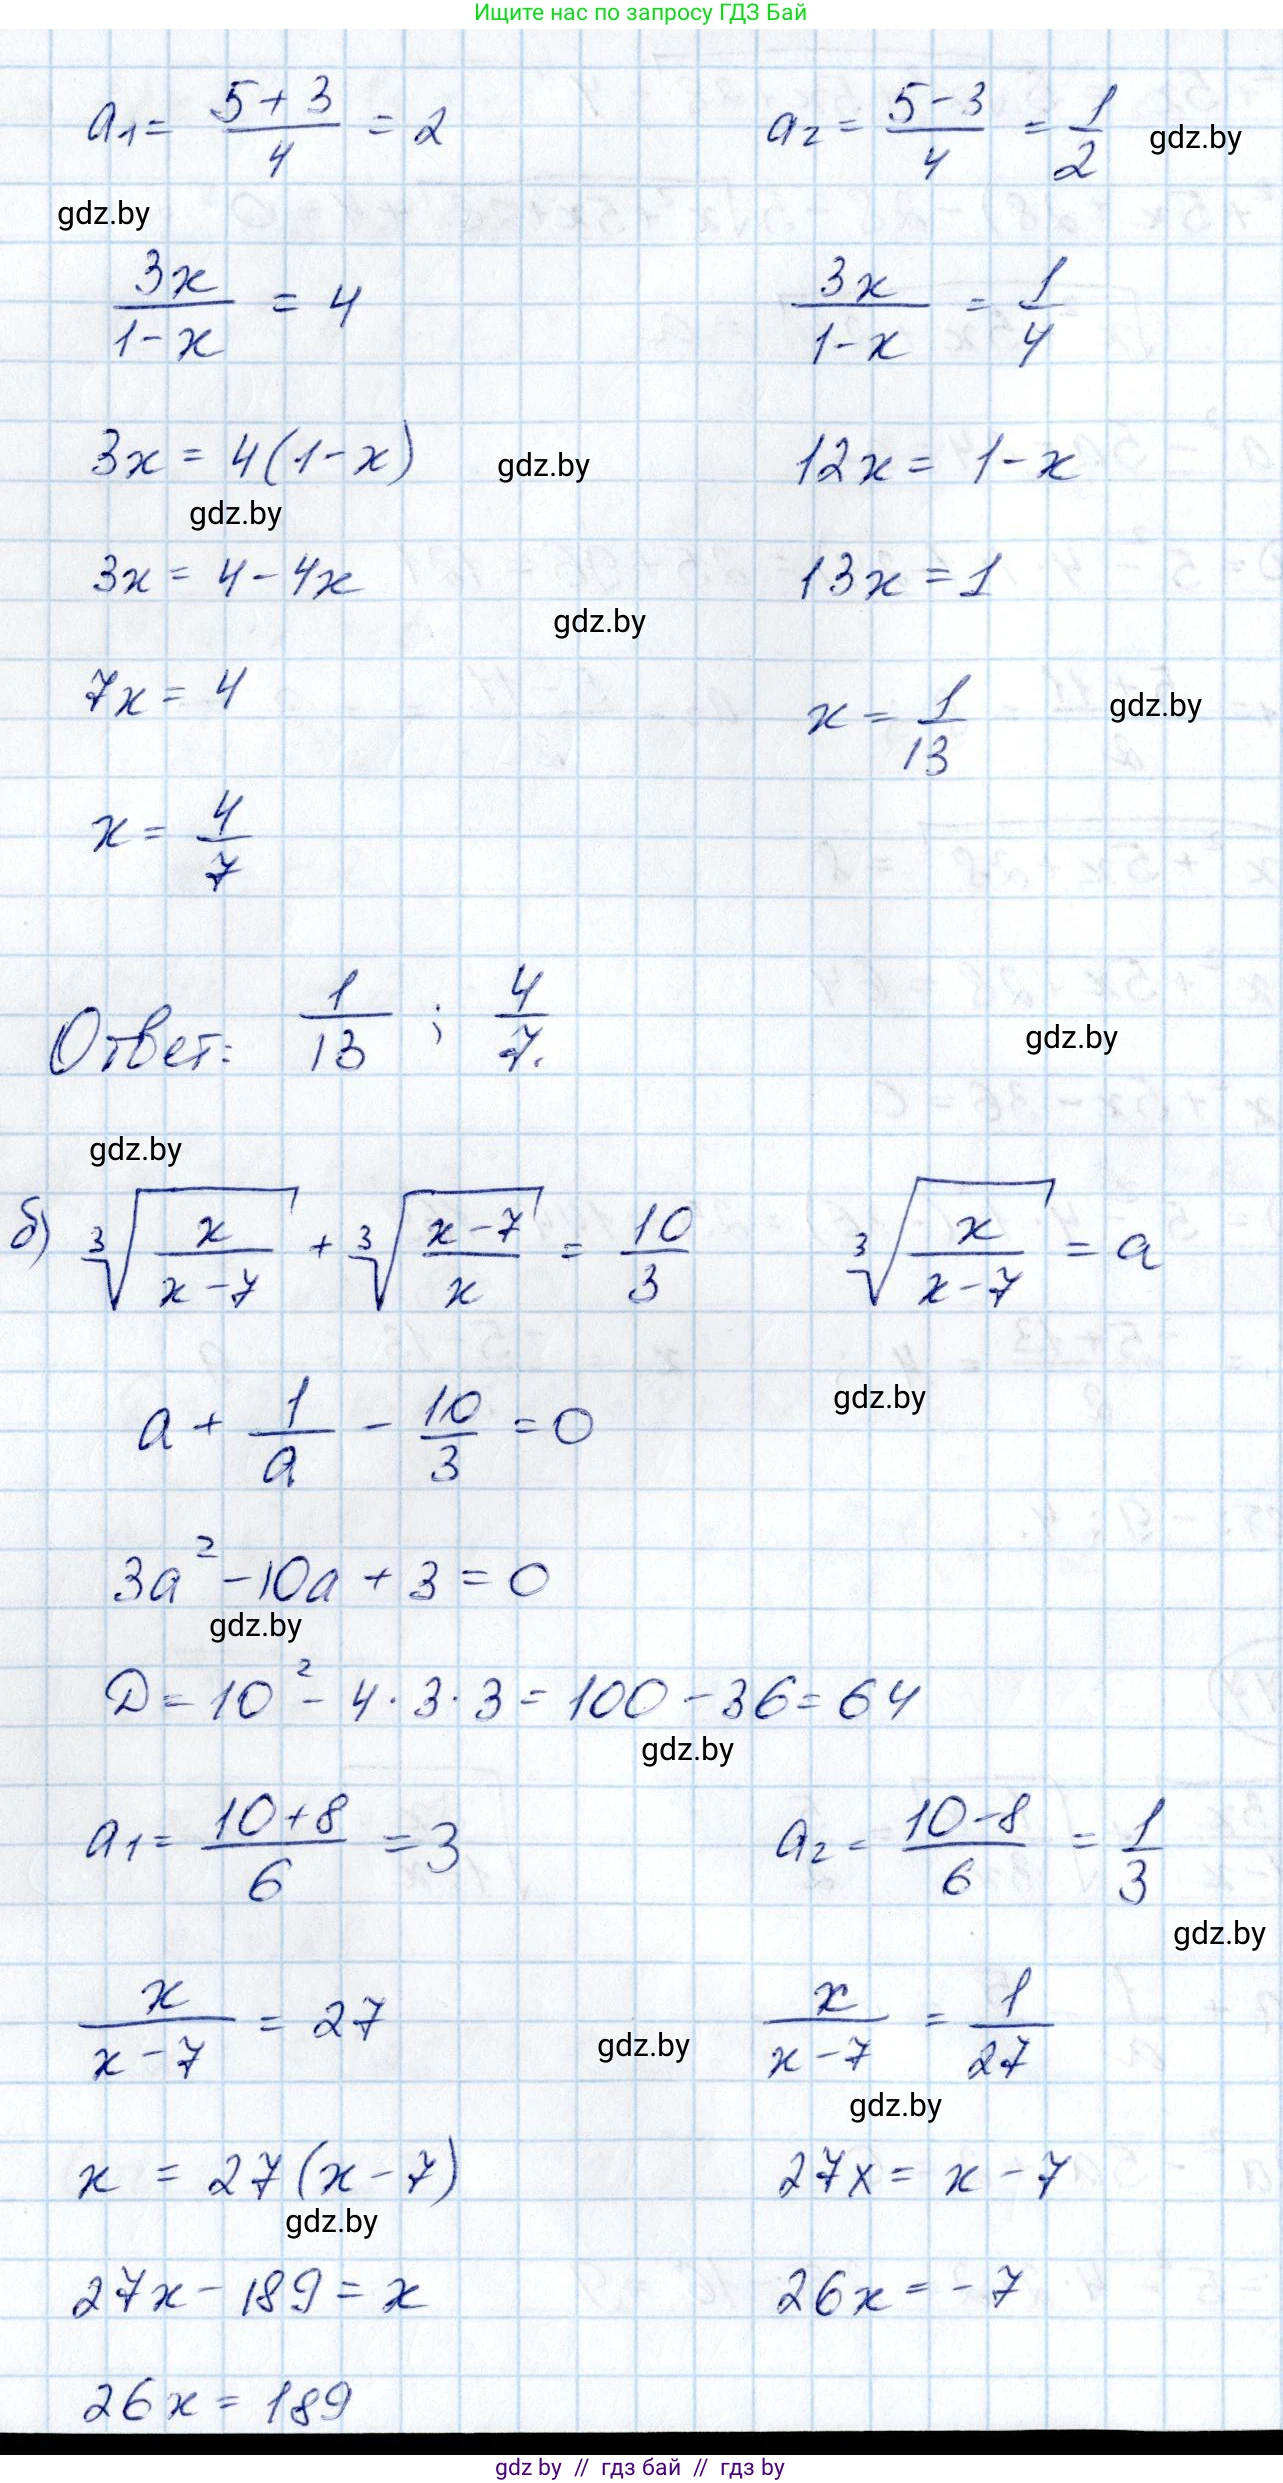 Ищите нас по запросу ГДЗ Бай
a₁ = (5+3)/4 = 2    a₂ = (5-3)/4 = 1/2    gdz.by
gdz.by
3x/(1-x) = 4    3x/(1-x) = 1/4
3x = 4(1-x)    gdz.by    12x = 1-x
gdz.by
3x = 4-4x    13x = 1
gdz.by
7x = 4    x = 1/13    gdz.by
x = 4/7
Ответ: 1/13 ; 4/7.    gdz.by
gdz.by
б) ∛(x/(x-7)) + ∛((x-7)/x) = 10/3    ∛(x/(x-7)) = a
a + 1/a - 10/3 = 0    gdz.by
3a² - 10a + 3 = 0
gdz.by
D = 10² - 4·3·3 = 100 - 36 = 64
gdz.by
a₁ = (10+8)/6 = 3    a₂ = (10-8)/6 = 1/3
gdz.by
x/(x-7) = 27    gdz.by    x/(x-7) = 1/27
gdz.by
x = 27(x-7)    27x = x-7
gdz.by
27x - 189 = x    26x = -7
26x = 189
gdz by // гдз бай // гдз by